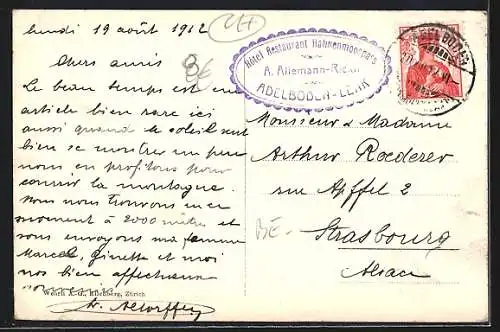 lundi 19 août 1912
Chers amis
Le beau temps est un
article bien rare ici
aussi quand le soleil veut
bien se montrer un peu
nous en profitons pour
courir la montagne.
Nous nous trouvons en ce
moment à 2000 mètres et
vous envoyons ma femme
Marcel, Ginette et moi
nos bien affectueux
Hôtel Restaurant Hahnenmoospass
A. Allemann-Rieder
ADELBODEN-LENK
ADELBODEN
Monsieur & Madame
Arthur Roederer
rue Apffel 2
Strasbourg
Alsace
BE-
Zürich